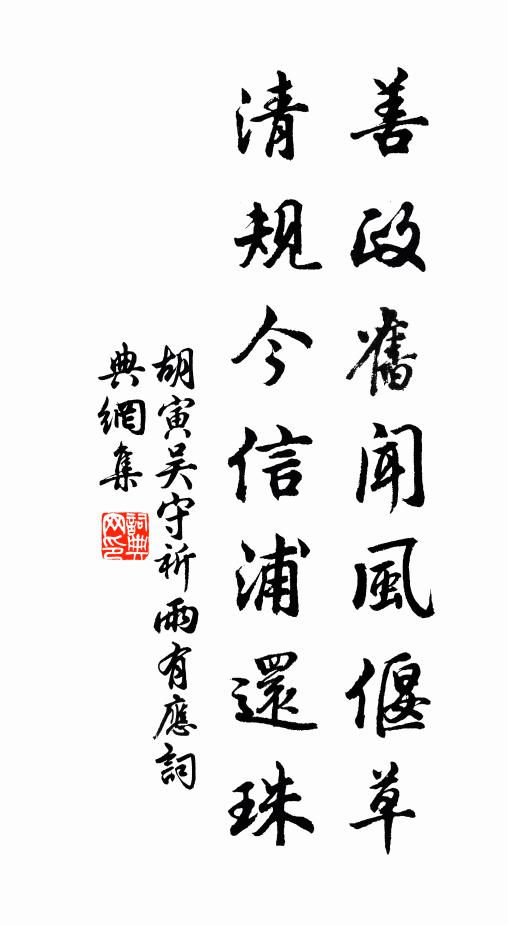 善政舊聞風偃草
清規今信浦還珠
胡寅吴守祈雨有應詞
典網集
詞典
网印